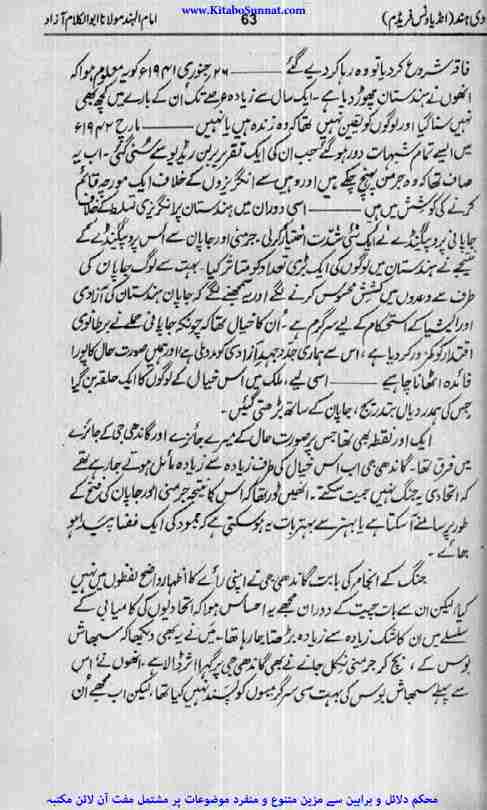 www.KitaboSunnat.com
دی ہند (انڈیا ونس فریڈم) 63 امام الہند مولانا ابوالکلام آزاد
فاقہ شروع کر دیا تو وہ رہا کر دیے گئے ——— ۲۶ جنوری ۱۹۴۱ء کو یہ معلوم ہوا کہ
انھوں نے ہندستان چھوڑ دیا ہے۔ ایک سال سے زیادہ عرصے تک ان کے بارے میں کچھ بھی
نہیں سنا گیا اور لوگوں کو یقین نہیں تھا کہ وہ زندہ ہیں یا نہیں ——— مارچ ۱۹۴۲ء
میں ایسے تمام شبہات دور ہو گئے جب ان کی ایک تقریر برلن ریڈیو سے سنی گئی۔ اب یہ
صاف تھا کہ وہ جرمنی پہنچ چکے ہیں اور وہیں سے انگریزوں کے خلاف ایک مورچہ قائم
کرنے کی کوشش میں ہیں ——— اسی دوران میں ہندستان پر انگریزی تسلط کے خلاف
جاپانی پروپیگنڈے نے ایک نئی شدت اختیار کر لی۔ جرمنی اور جاپان سے اس پروپیگنڈے کے
نتیجے نے ہندستان میں لوگوں کی ایک بڑی تعداد کو متاثر کیا۔ بہت سے لوگ جاپان کی
طرف سے وعدوں میں کشش محسوس کرنے لگے اور یہ سمجھنے لگے کہ جاپان ہندستان کی آزادی
اور ایشیا کے استحکام کے لیے سرگرم ہے۔ اُن کا خیال تھا کہ چونکہ جاپانی حملے نے برطانوی
اقتدار کو کمزور کر دیا ہے، اس سے ہماری جدوجہدِ آزادی کو مدد ملی ہے اور ہمیں صورت حال کا پورا
فائدہ اٹھانا چاہیے ——— اسی لیے، ملک میں اس خیال کے لوگوں کا ایک حلقہ بن گیا
جس کی ہمدردیاں بتدریج، جاپان کے ساتھ بڑھتی گئیں۔
ایک اور نقطہ بھی تھا جس پر صورت حال کے میرے جائزے اور گاندھی جی کے جائزے
میں فرق تھا۔ گاندھی جی اب اس خیال کی طرف زیادہ سے زیادہ مائل ہوتے جا رہے تھے
کہ اتحادی یہ جنگ نہیں جیت سکتے۔ انھیں ڈر تھا کہ اس کا نتیجہ جرمنی اور جاپان کی فتح کے
طور پر سامنے آ سکتا ہے یا بہتر سے بہتر بات یہ ہو سکتی ہے کہ جمود کی ایک فضا پیدا ہو
جائے۔
جنگ کے انجام کی بابت گاندھی جی نے اپنی رائے کا اظہار واضح لفظوں میں نہیں
کیا، لیکن ان سے بات چیت کے دوران مجھے یہ احساس ہوا کہ اتحادیوں کی کامیابی کے
سلسلے میں ان کا شک زیادہ سے زیادہ بڑھتا جا رہا تھا۔ میں نے یہ بھی دیکھا کہ سبھاش
بوس کے، بچ کر جرمنی نکل جانے نے بھی گاندھی جی پر گہرا اثر ڈالا ہے۔ انھوں نے اس
سے پہلے سبھاش بوس کی بہت سی سرگرمیوں کو پسند نہیں کیا تھا، لیکن اب مجھے اُن
محکم دلائل و براہین سے مزین متنوع و منفرد موضوعات پر مشتمل مفت آن لائن مکتبہ